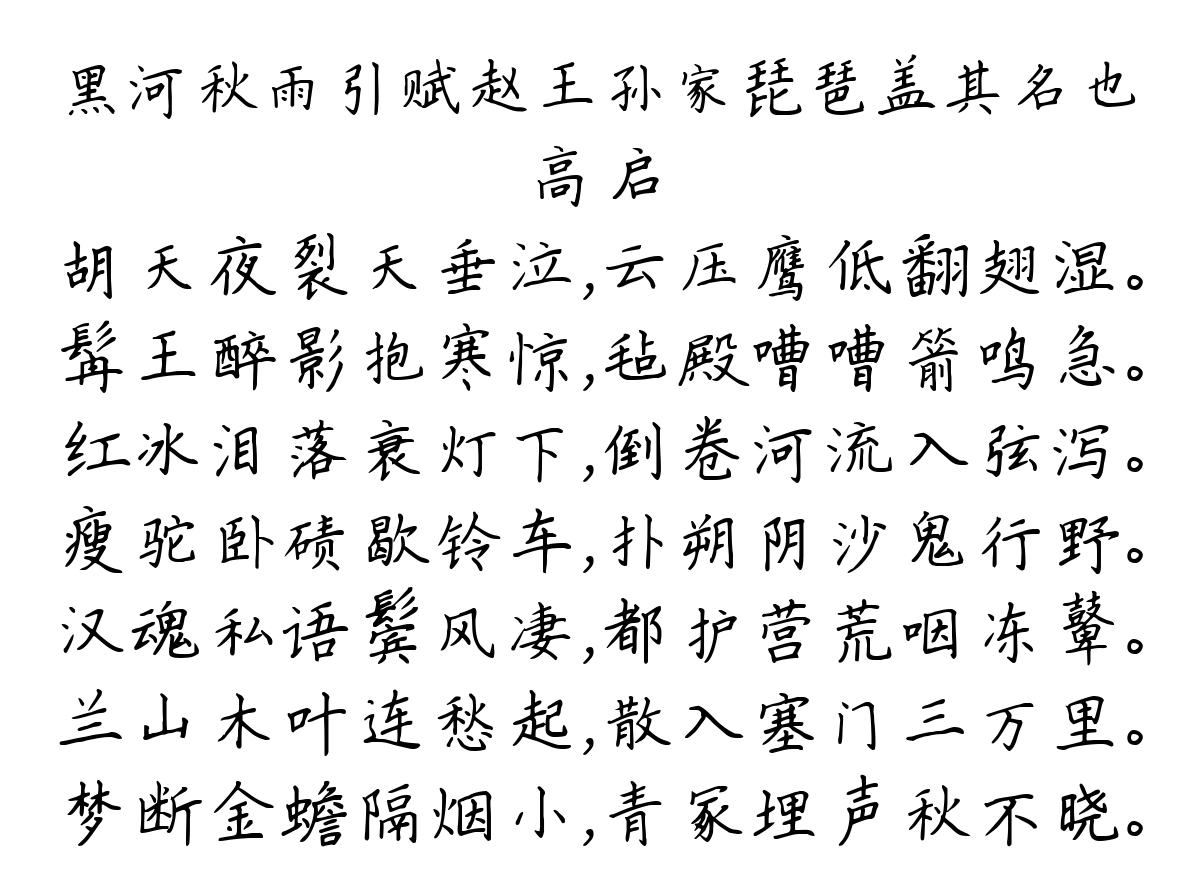 黑河秋雨引赋赵王孙家琵琶盖其名也
高启
胡天夜裂天垂泣,云压鹰低翻翅湿。
髯王醉影抱寒惊,毡殿嘈嘈箭鸣急。
红冰泪落衰灯下,倒卷河流入弦泻。
瘦驼卧碛歇铃车,扑朔阴沙鬼行野。
汉魂私语鬓风凄,都护营荒咽冻鼙。
兰山木叶连愁起,散入塞门三万里。
梦断金蟾隔烟小,青冢埋声秋不晓。